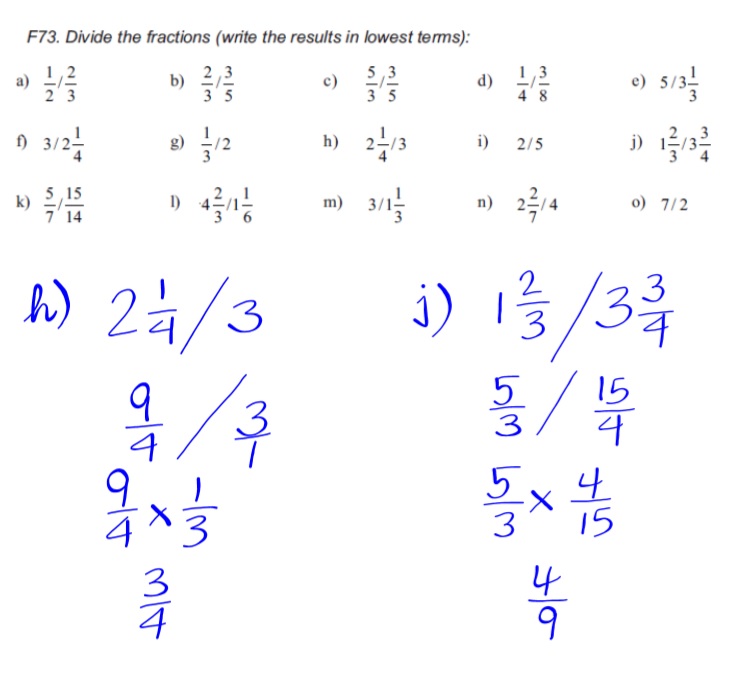 F73. Divide the fractions (write the results in lowest terms):
a) 1/2 / 2/3 b) 2/3 / 3/5 c) 5/3 / 3/5 d) 1/4 / 3/8 e) 5/3 1/3
f) 3/2 1/4 g) 1/3 /2 h) 2 1/4 /3 i) 2/5 j) 1 2/3 /3 3/4
k) 5/7 / 15/14 l) 4 2/3 /1 1/6 m) 3/1 1/3 n) 2 2/7 /4 o) 7/2
h) 2 1/4 / 3 j) 1 2/3 / 3 3/4
9/4 / 3/1 5/3 / 15/4
9/4 × 1/3 5/3 × 4/15
3/4 4/9